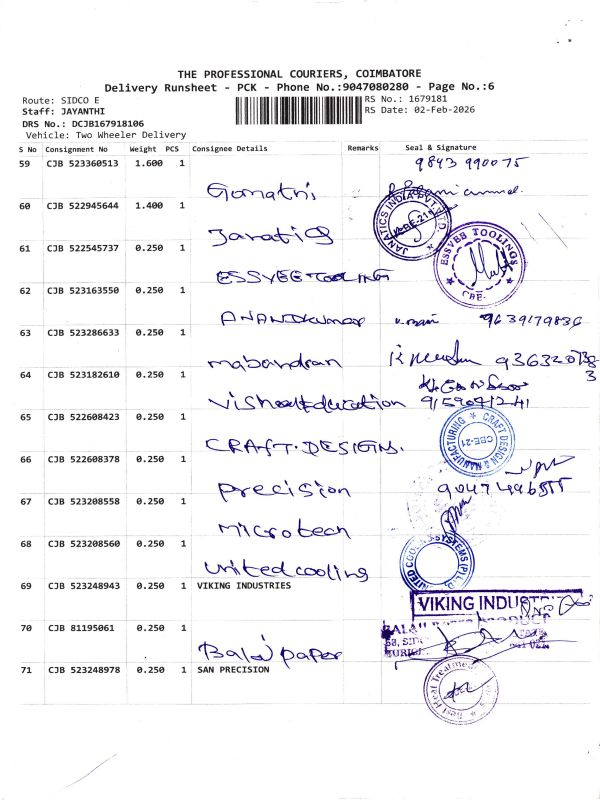 THE PROFESSIONAL COURIERS, COIMBATORE
Delivery Runsheet - PCK - Phone No.:9047080280 - Page No.:6
Route: SIDCO E
RS No.: 1679181
Staff: JAYANTHI
RS Date: 02-Feb-2026
DRS No.: DCJB167918106
Vehicle: Two Wheeler Delivery
S No Consignment No Weight PCS Consignee Details Remarks Seal & Signature
59 CJB 523360513 1.600 1 9843 990075
Gomathi
60 CJB 522945644 1.400 1
JANATICS INDIA PVT LTD
CBE-21
61 CJB 522545737 0.250 1
ESSVEE TOOLINGS
CBE-
ESSVEE TOOLING
62 CJB 523163550 0.250 1
ANANDKumar 9639179836
63 CJB 523286633 0.250 1
mabandran
64 CJB 523182610 0.250 1
65 CJB 522608423 0.250 1
CRAFT DESIGN & MANUFACTURING
CBE-21
CRAFT. DESIGNS.
66 CJB 522608378 0.250 1
Precision
67 CJB 523208558 0.250 1
Microtech
68 CJB 523208560 0.250 1
united cooling
69 CJB 523248943 0.250 1 VIKING INDUSTRIES
VIKING INDUSTR
70 CJB 81195061 0.250 1
Balaji paper
71 CJB 523248978 0.250 1 SAN PRECISION
Best Heat Treatment